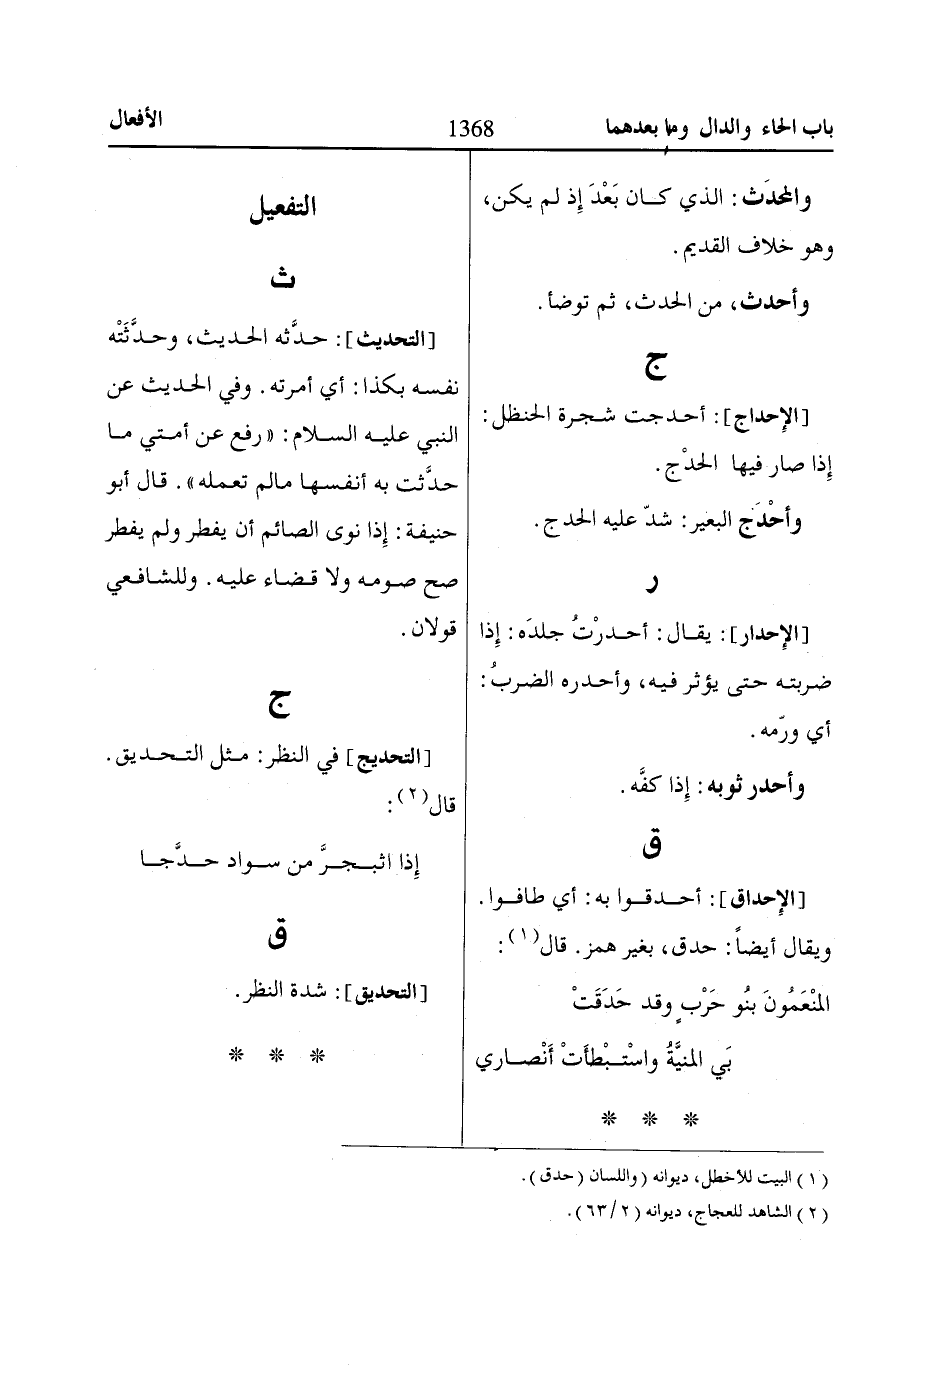 باب الحاء والدال وما بعدهما
1368
الأفعال
والمُحدَث: الذي كان بَعْدَ إِذ لم يكن،
وهو خلاف القديم.
وأحدث، من الحدث، ثم توضأ.
ج
[الإِحداج]: أحدجت شجرة الحنظل:
إِذا صار فيها الحدْج.
وأحْدَج البعير: شدّ عليه الحدج.
ر
[الإِحدار]: يقال: أحدرْتُ جلدَه: إِذا
ضربته حتى يؤثر فيه، وأحدره الضربُ:
أي ورّمه.
وأحدر ثوبه: إِذا كفَّه.
ق
[الإِحداق]: أحدقوا به: أي طافوا.
ويقال أيضاً: حدق، بغير همز. قال(١):
المُنْعَمُونَ بنُو حَرْبٍ وقد حَدَقَتْ
بَي المنيَّةُ واسْتبْطأَتْ أَنْصاري
* * *
التفعيل
ث
[التحديث]: حدَّثه الحديث، وحدَّثَتْه
نفسه بكذا: أي أمرته. وفي الحديث عن
النبي عليه السلام: «رفع عن أمتي ما
حدَّثت به أنفسها مالم تعمله». قال أبو
حنيفة: إِذا نوى الصائم أن يفطر ولم يفطر
صح صومه ولا قضاء عليه. وللشافعي
قولان.
ج
[التحديج] في النظر: مثل التحديق.
قال(٢):
إِذا اثبجرَّ من سواد حدَّجا
ق
[التحديق]: شدة النظر.
* * *
(١) البيت للأخطل، ديوانه (واللسان (حدق).
(٢) الشاهد للعجاج، ديوانه (٢/٦٣).